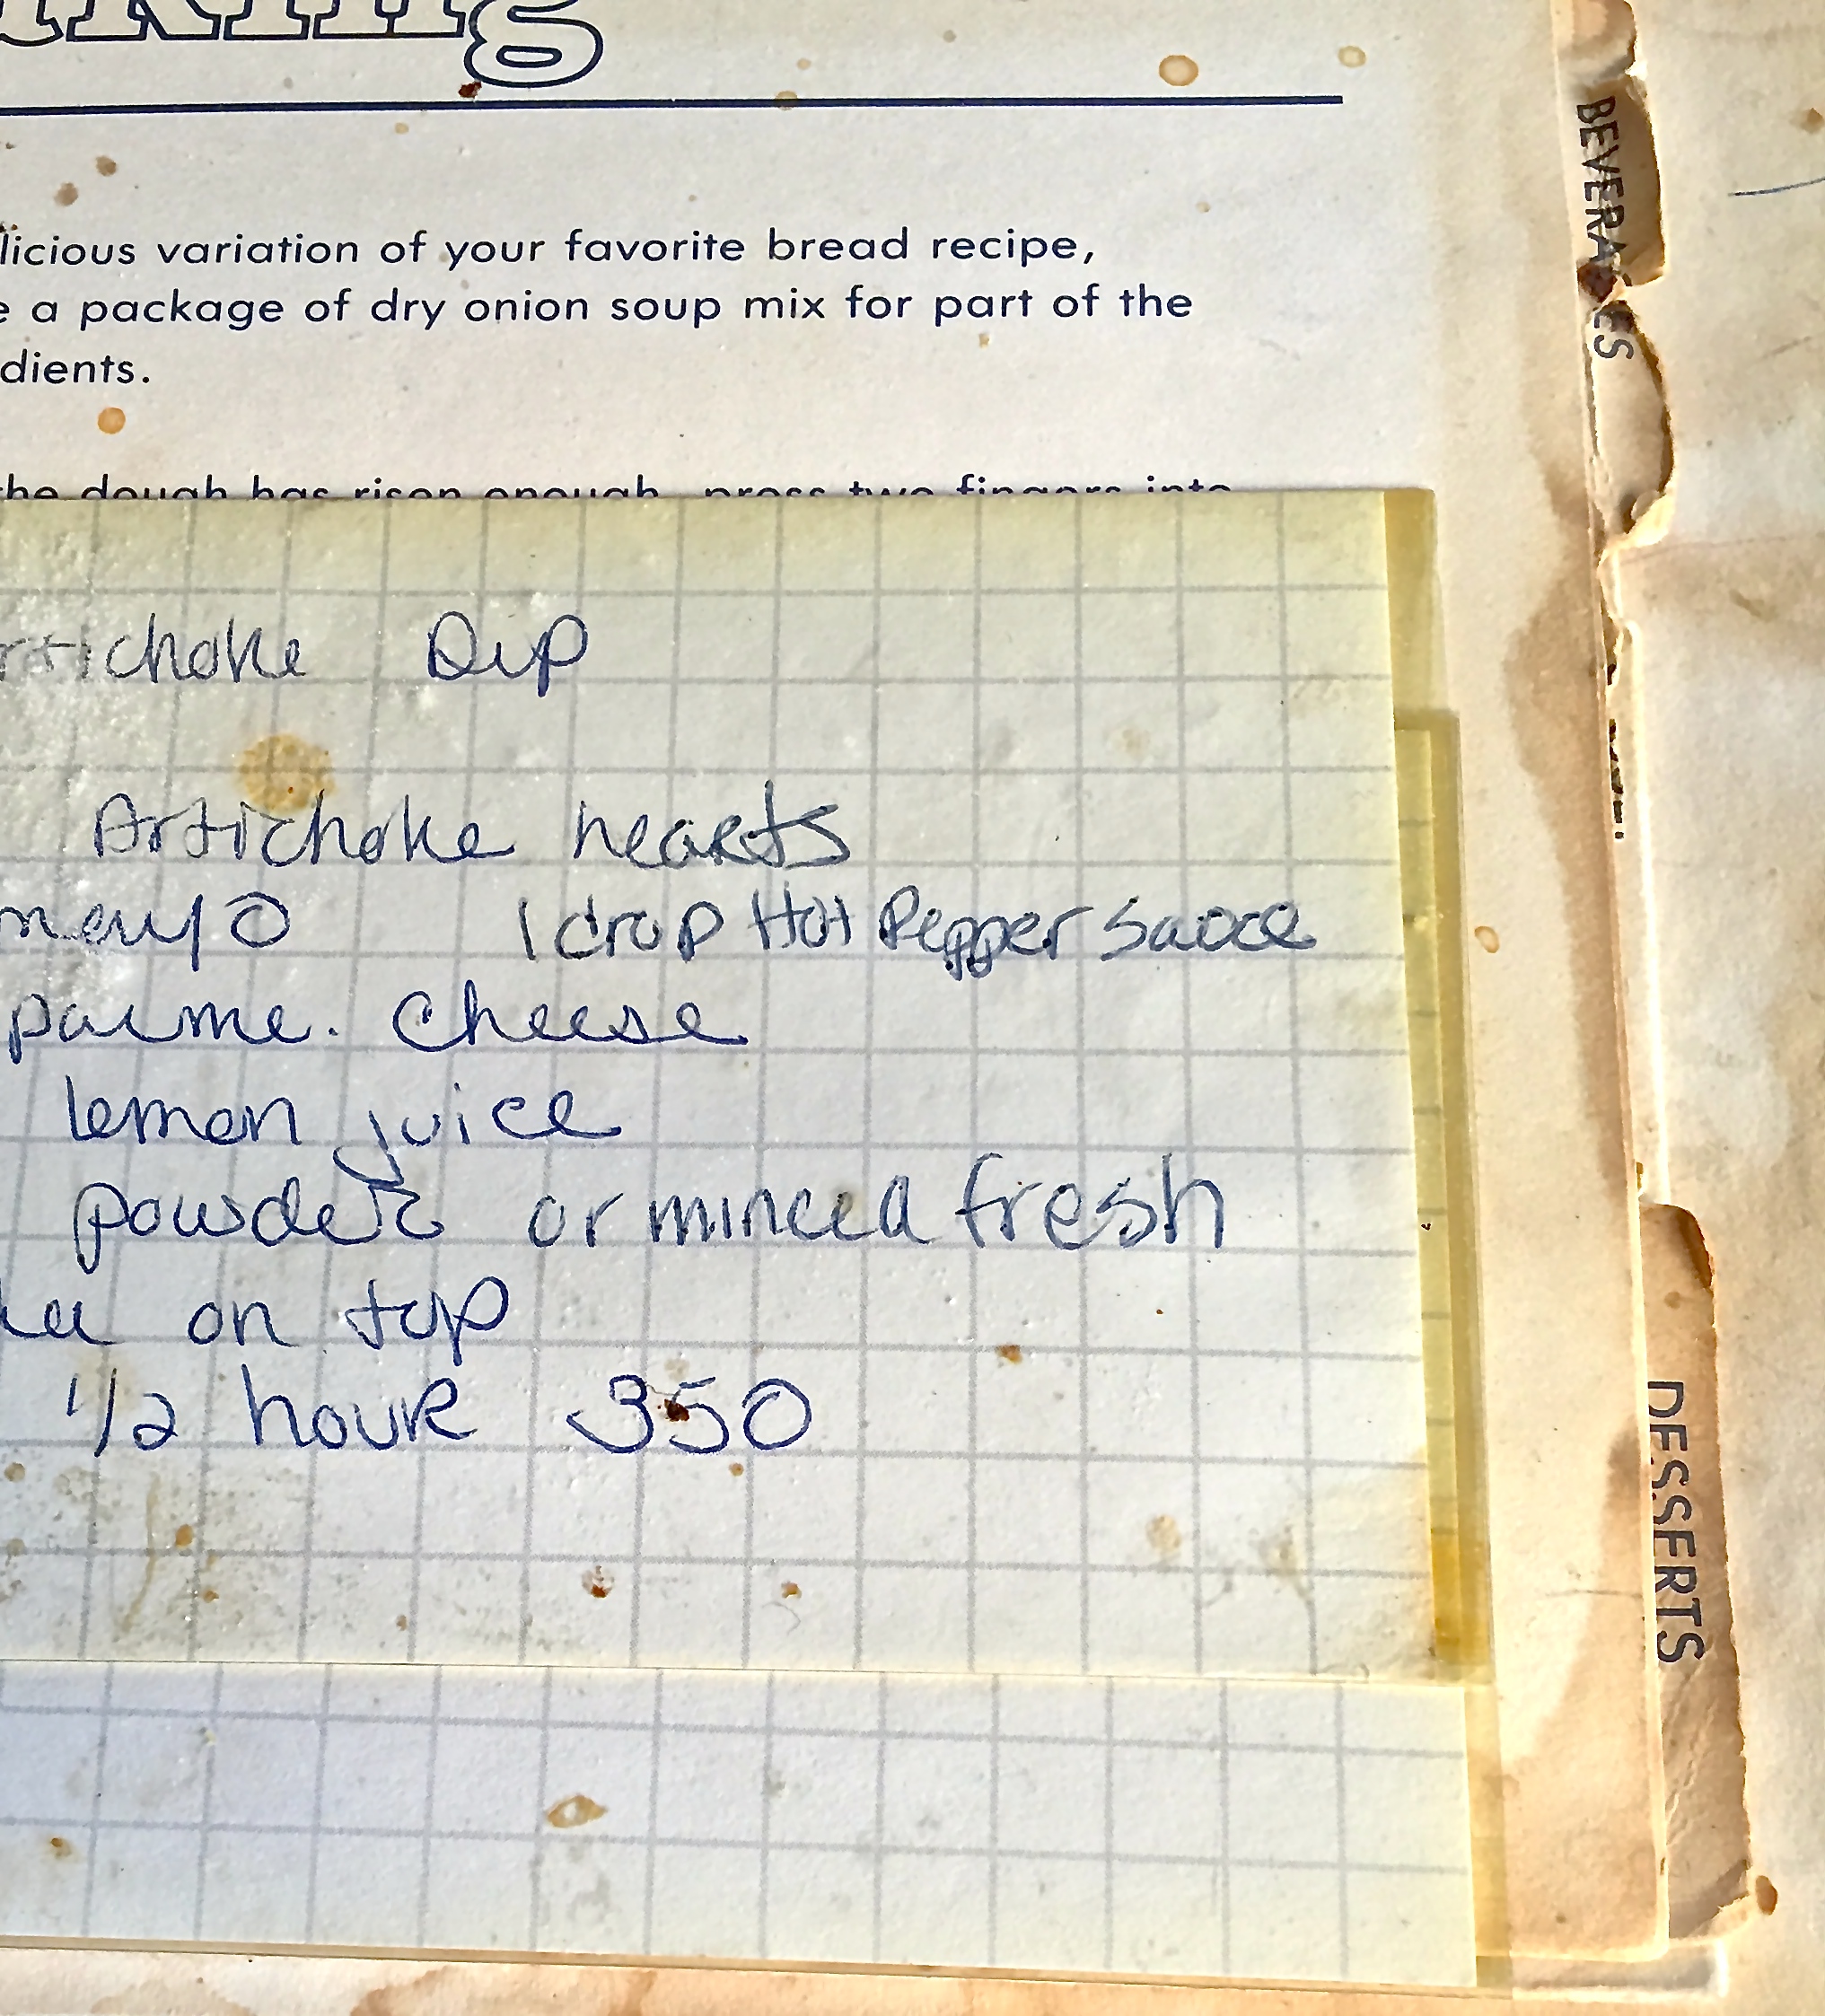 licious variation of your favorite bread recipe,
a package of dry onion soup mix for part of the
dients.
the dough has risen enough, press two fingers into
Artichoke Dip
Artichoke hearts
mayo 1 drop Hot Pepper Sauce
parme. cheese
lemon juice
powder or minced fresh
on top
1/2 hour 350
BEVERAGES
DESSERTS